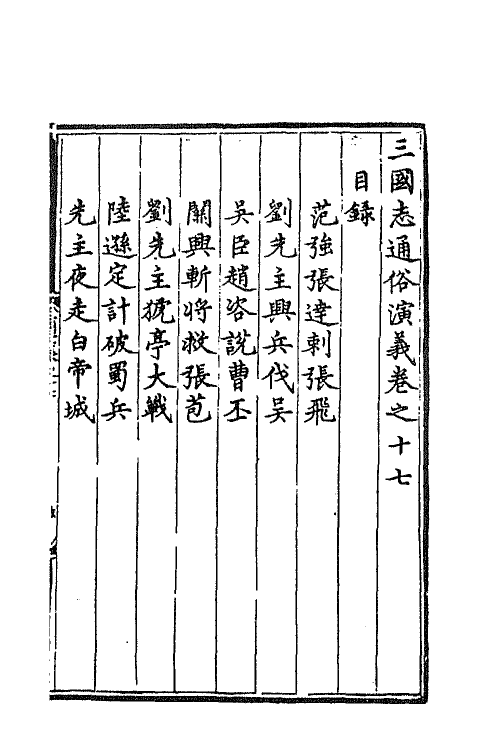 三國志通俗演義卷之十七
目錄
范強張達刺張飛
劉先主興兵伐吳
吳臣趙咨說曹丕
關興斬將救張苞
劉先主猇亭大戰
陸遜定計破蜀兵
先主夜走白帝城